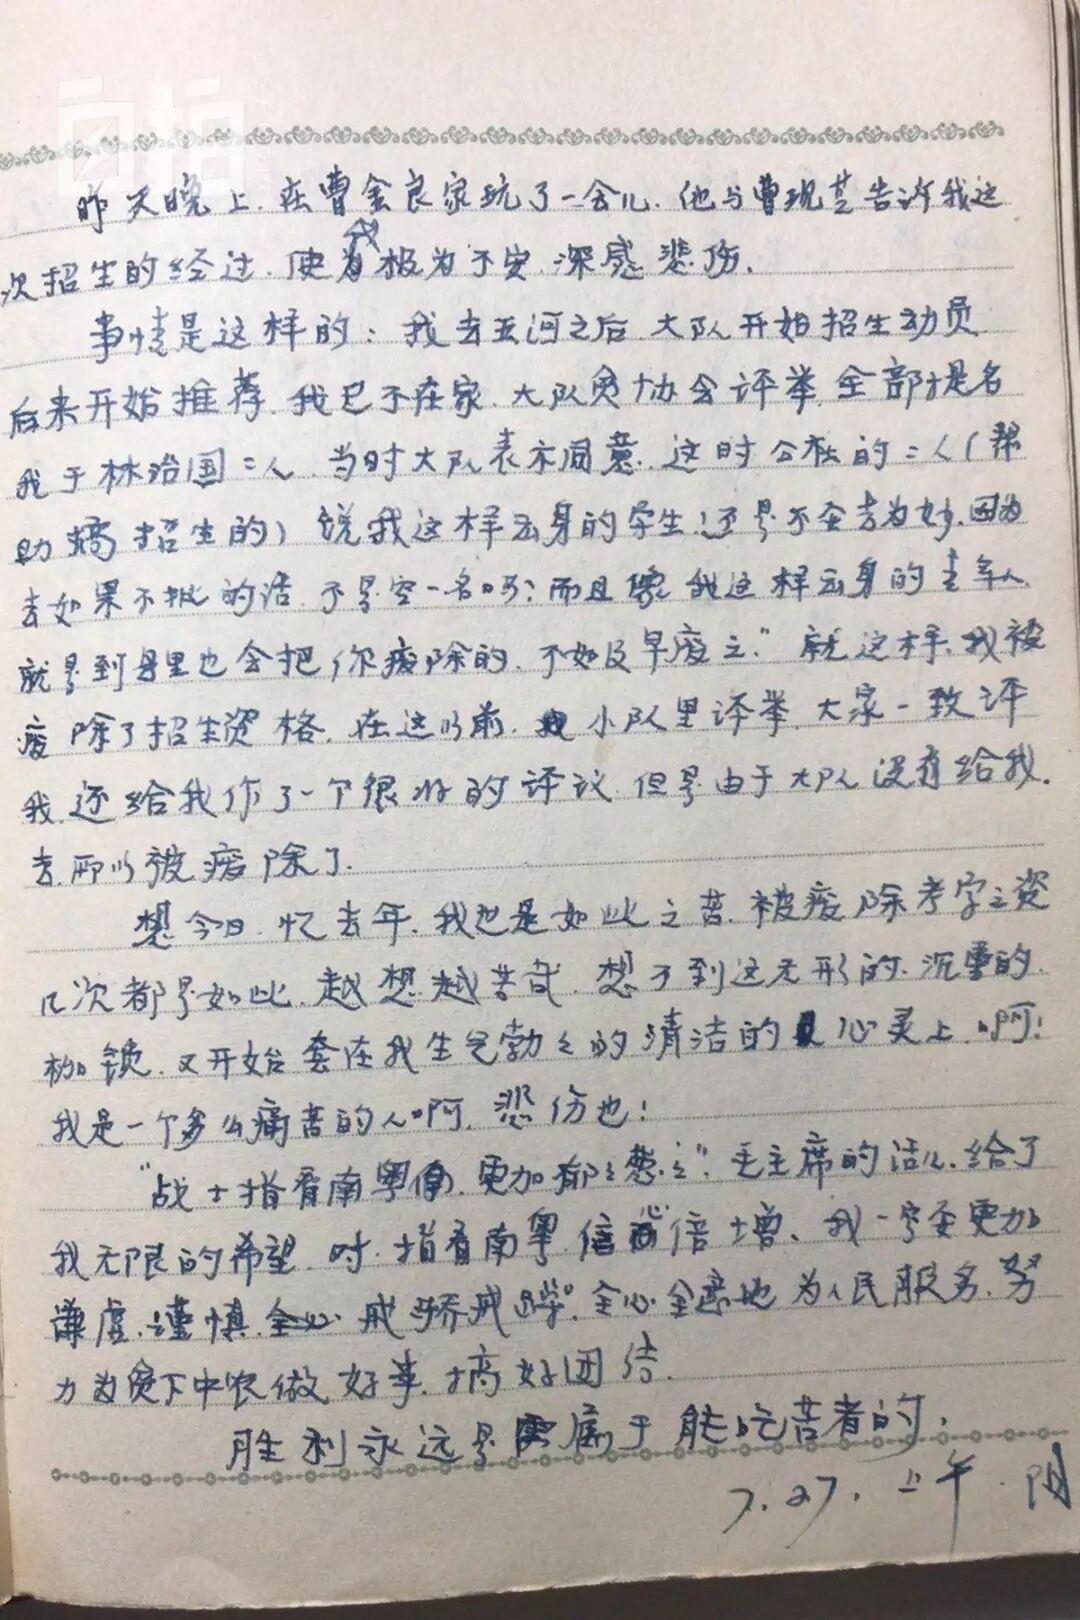 自拍
昨天晚上.在曹金良家玩了一会儿.他与曹现芝告诉我这
次招生的经过.使我极为不安.深感悲伤.
事情是这样的：我去五河之后.大队开始招生动员
后来开始推荐.我已不在家.大队贫协会评举.全部提名
我于林治国二人.当时大队表示同意.这时公社的二人(帮
助搞招生的)说我这样出身的学生!还是不去为妙.因为
去如果不批的话.不是空一名吗?而且像我这样出身的青年人.
就是到县里也会把你废除的.不如及早废之."就这样.我被
废除了招生资格.在这以前.小队里评举.大家一致评
我.还给我作了一个很好的评议.但是由于大队没有给我.
去.所以被废除了.
想今日.忆去年.我也是如此之苦.被废除考学之资
几次都是如此.越想越苦哉.想不到这无形的.沉重的.
枷锁.又开始套在我生气勃々的清洁的心灵上.啊!
我是一个多么痛苦的人啊.悲伤也!
"战士指看南粤.更加郁々葱々".毛主席的话儿.给了
我无限的希望.时.指看南粤.信心倍增、我一定要更加
谦虚.谨慎.戒骄戒躁.全心全意地为人民服务.努
力为贫下中农做好事.搞好团结.
胜利永远是属于能吃苦者的.
7.27.上午.阴